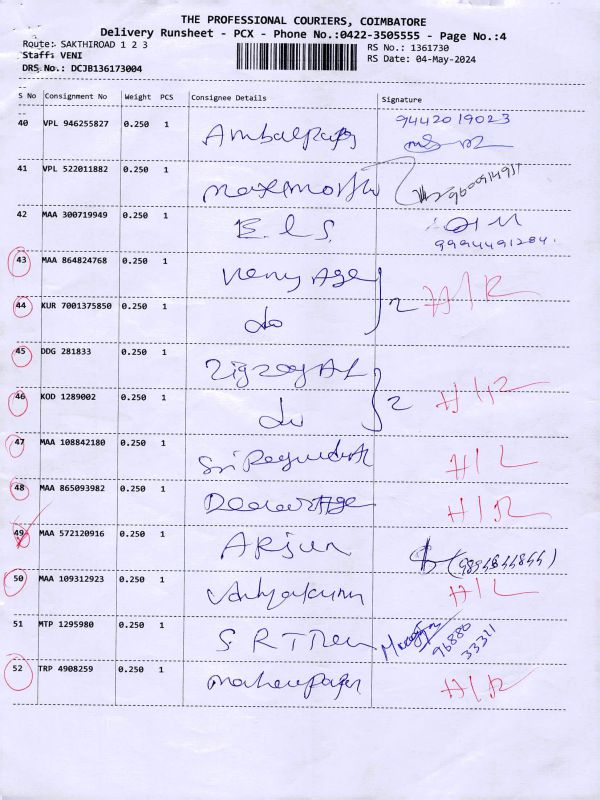 THE PROFESSIONAL COURIERS, COIMBATORE
Delivery Runsheet - PCX - Phone No.:0422-3505555 - Page No.:4
Route: SAKTHIROAD 1 2 3 RS No.: 1361730
Staff: VENI RS Date: 04-May-2024
DRS No.: DCJB136173004
S No Consignment No Weight PCS Consignee Details Signature
40 VPL 946255827 0.250 1 9442019023
41 VPL 522011882 0.250 1
42 MAA 300719949 0.250 1 E.l S. 9994491284.
43 MAA 864824768 0.250 1 Age 2 H/R
44 KUR 7001375850 0.250 1 do
45 DDG 281833 0.250 1 2 H/R
46 KOD 1289002 0.250 1 do
47 MAA 108842180 0.250 1 Sri H/L
48 MAA 865093982 0.250 1 H/R
49 MAA 572120916 0.250 1 Arjun
50 MAA 109312923 0.250 1 H/L
51 MTP 1295980 0.250 1 S R T 96880
33311
52 TRP 4908259 0.250 1 H/R